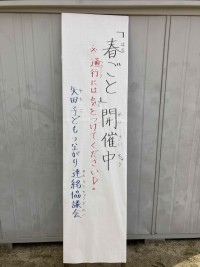 「春ごと」開催中
※通行には気をつけてください
矢田子どもつながり連絡協議会